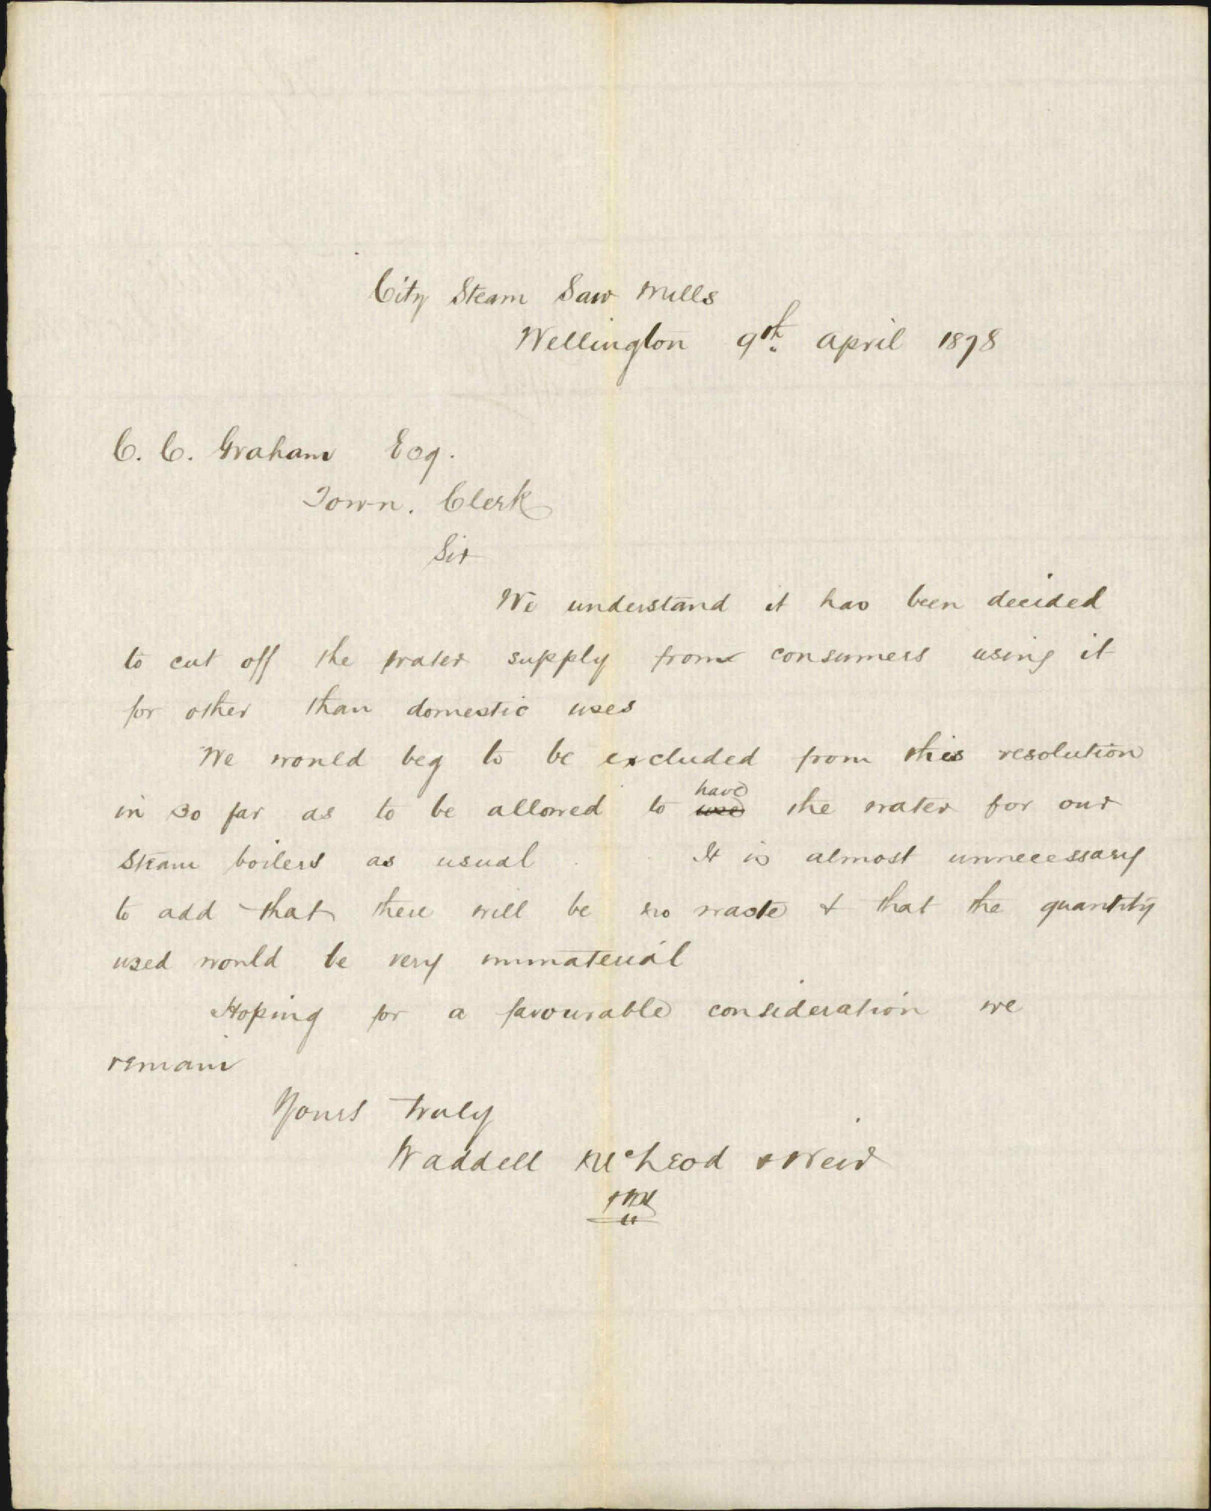 City Steam Saw Mills
Wellington 9th. April 1878
C. C. Graham Esq.
Town. Clerk
Sir
We understand it has been decided
to cut off the water supply from consumers using it
for other than domestic uses
We would beg to be excluded from this resolution
have
in so far as to be allowed to use the water for our
Steam boilers as usual. It is almost unnecessary
to add that there will be no waste & that the quantity
used would be very immaterial
Hoping for a favourable consideration we
remain
Yours truly
Waddell McLeod & Weir